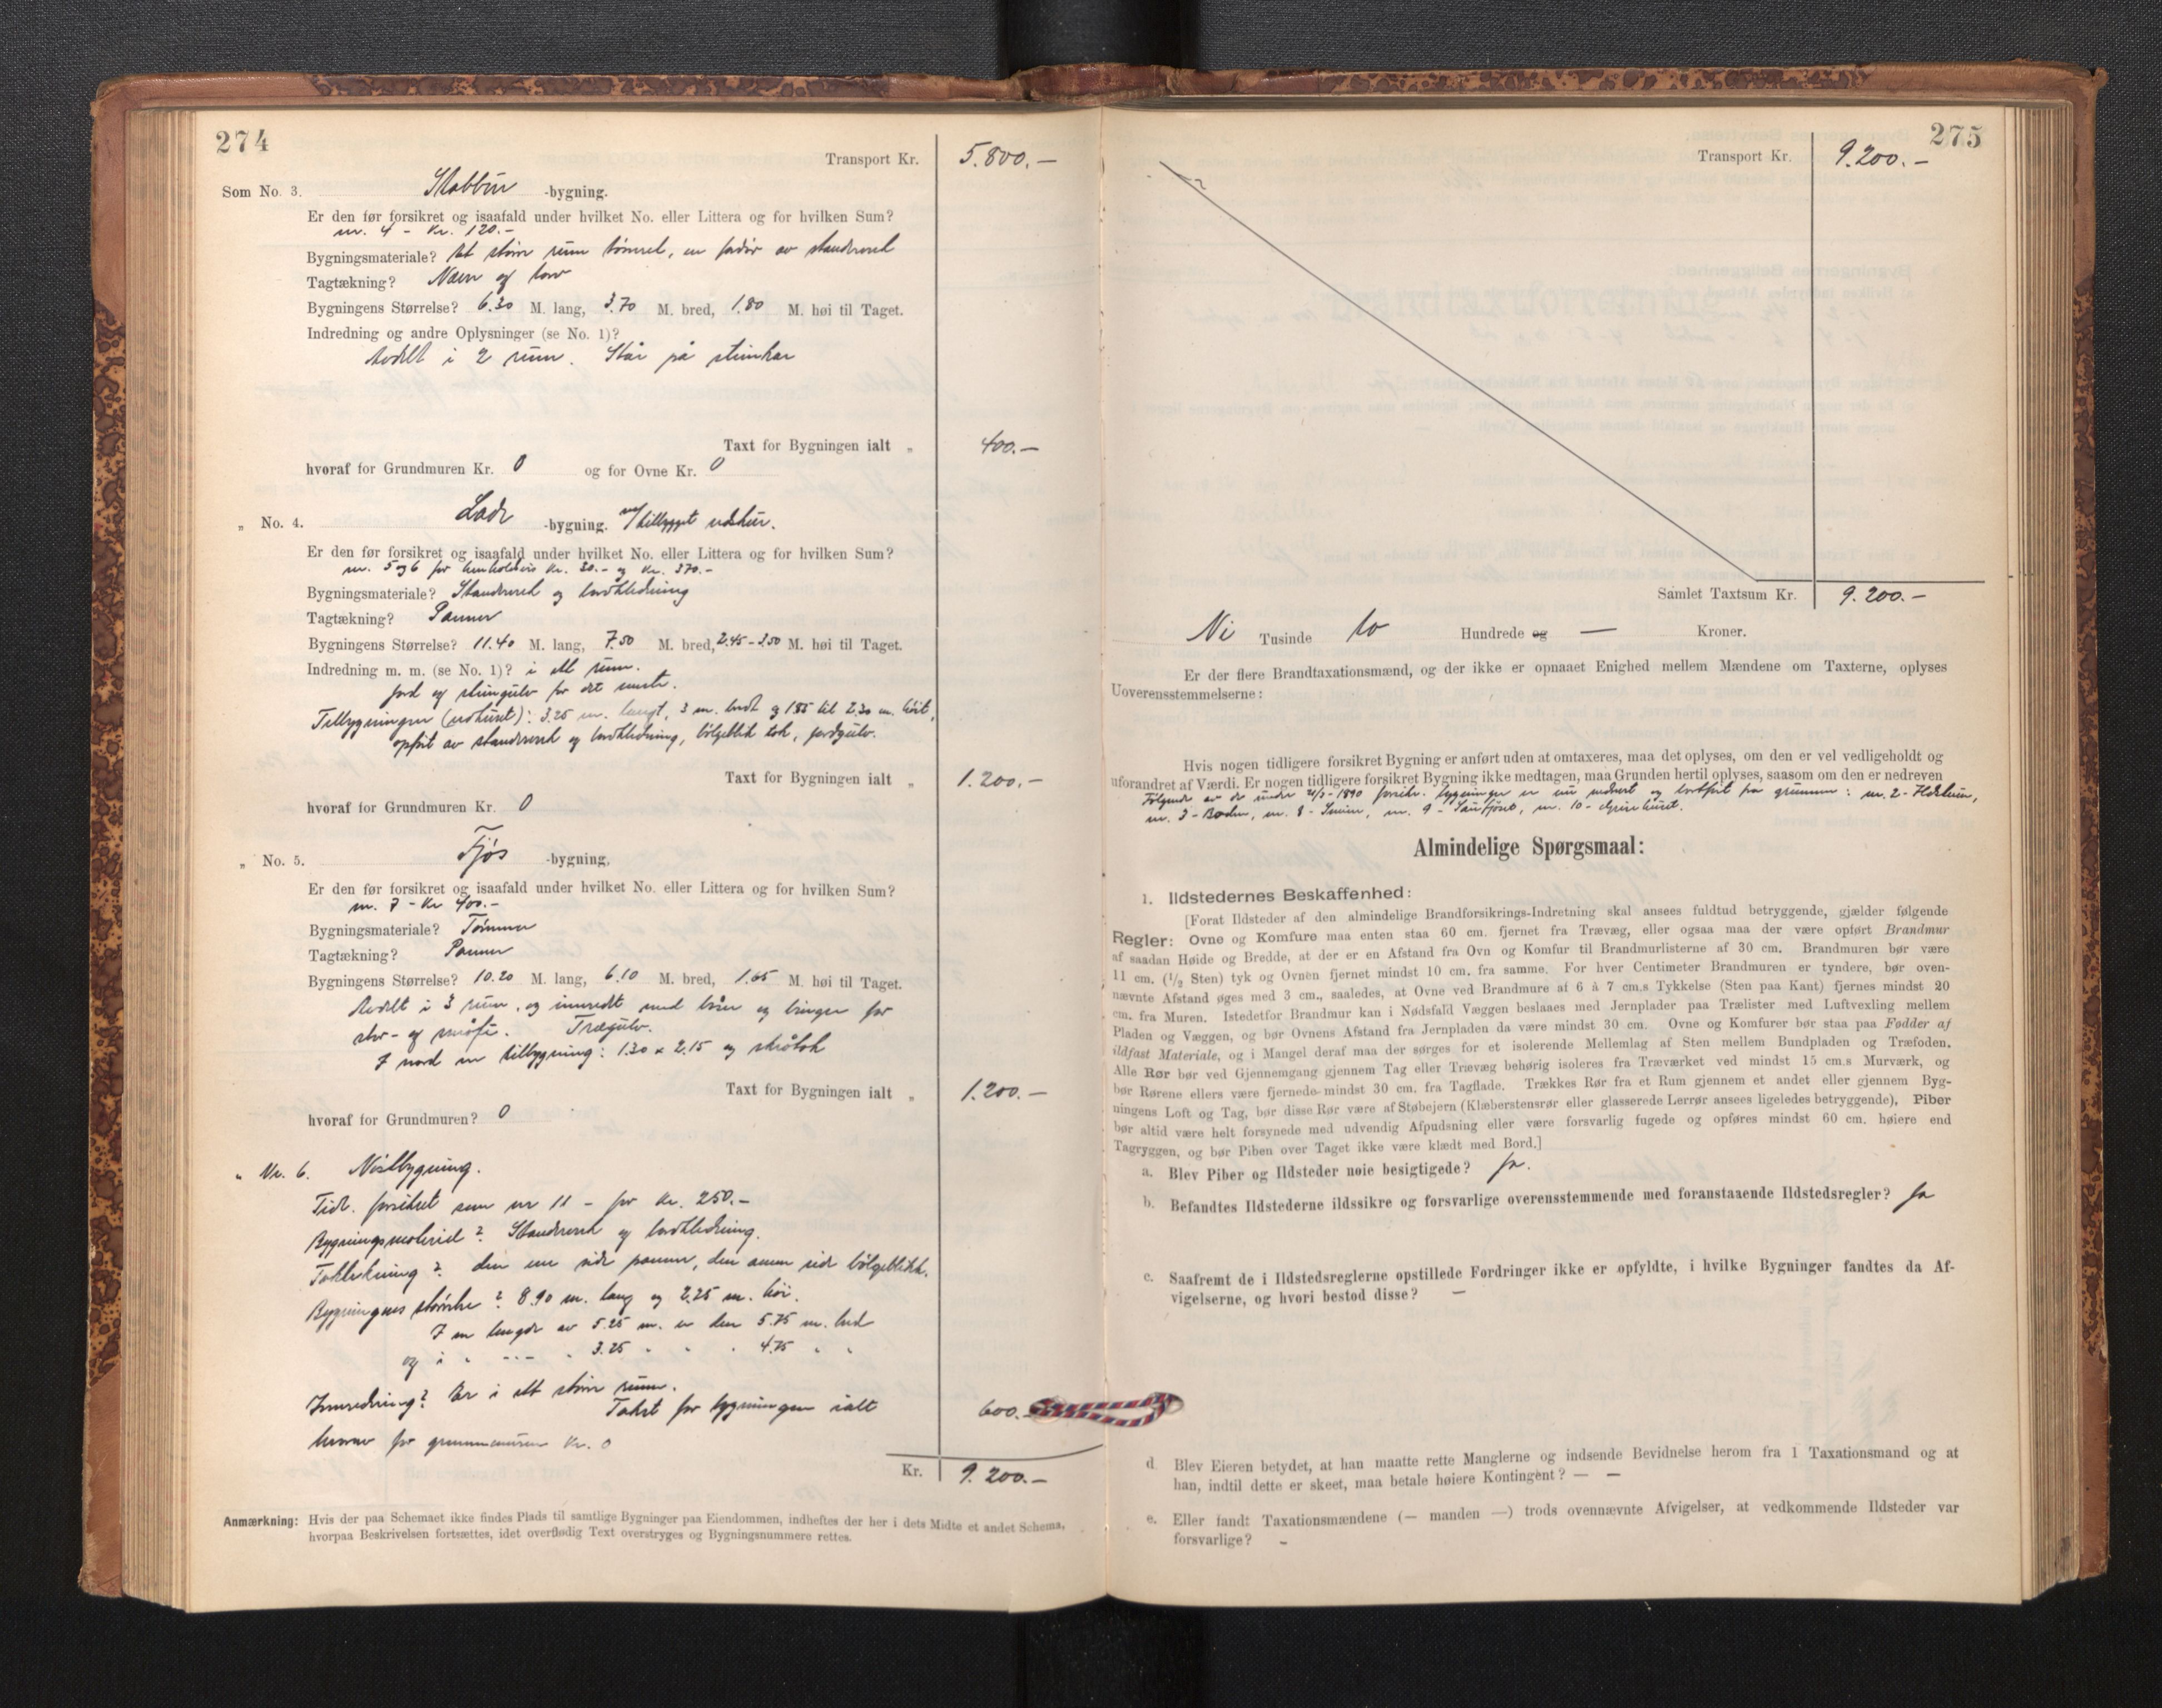 274
Transport Kr. 5.800.-
Som No. 3. Stabbur -bygning.
Er den før forsikret og isaafald under hvilket No. eller Littera og for hvilken Sum?
nr. 4 - Kr. 120.-
Bygningsmateriale? Et større rum tømret, en av standverch
Tagtækning? Næver og torv
Bygningens Størrelse? 6.30 M. lang, 3.70 M. bred, 1.80 M. høi til Taget.
Indredning og andre Oplysninger (se No. 1)?
Avdelt i 2 rum. Står på
Taxt for Bygningen ialt „ 400.-
hvoraf for Grundmuren Kr. 0 og for Ovne Kr. 0
„ No. 4. Lade -bygning. m/ tilbygget vedskur.
Er den før forsikret og isaafald under hvilket No. eller Littera og for hvilken Sum?
nr. 5 og 6 for henholdsvis Kr. 30.- og Kr. 370.-
Bygningsmateriale? Standverch og bordkledning
Tagtækning? Panner
Bygningens Størrelse? 11.40 M. lang, 7.50 M. bred, 2.45-3.50 M. høi til Taget.
Indredning m. m. (se No. 1)? i ett rum.
jord og stengulv for det meste.
Tilbygningen (vedhuset): 3.25 m. langt, 3 m. bredt og 1.85 til 2.30 m. høit,
opført av standverch og bordkledning, bølgeblikk tak, jordgulv.
Taxt for Bygningen ialt „ 1.200.-
hvoraf for Grundmuren Kr. 0
„ No. 5. Fjøs -bygning.
Er den før forsikret og isaafald under hvilket No. eller Littera og for hvilken Sum?
nr. 7 - Kr 400.-
Bygningsmateriale? Tømmer
Tagtækning? Panner
Bygningens Størrelse? 10.20 M. lang, 6.10 M. bred, 1.65 M. høi til Taget.
Avdelt i 3 rum, og innredt med båser og binger for
stor- og småfe. Trægulv.
I nord en tilbygning: 1.30 x 2.15 og skråtak
Taxt for Bygningen ialt „ 1.200.-
hvoraf for Grundmuren? 0
„ Nr. 6. Nøstbygning.
Tidl. forsikret som nr 11 - for Kr. 250.-
Bygningsmateriel? Standverch og bordkledning.
Taktekning? den ene side panner, den annen side bølgeblikk.
Bygningens størrelse? 8.90 m. lang og 2.25 m. høi.
I en lengde av 5.25 m. er den 5.75 m. bred
og i " --- " 3.25 " " " 4.75 " "
Innredning? Er i ett større rum.
Takst for bygningen ialt 600.-
hvorav for grunnmuren Kr. 0
Kr. 9.200.-
Anmærkning: Hvis der paa Schemaet ikke findes Plads til samtlige Bygninger paa Eiendommen, indheftes der her i dets Midte et andet Schema,
hvorpaa Beskrivelsen fortsættes, idet overflødig Text overstryges og Bygningsnummere rettes.
275
Transport Kr. 9.200.-
Samlet Taxtsum Kr. 9.200.-
Ni Tusinde to Hundrede og — Kroner.
Er der flere Brandtaxationsmænd, og der ikke er opnaaet Enighed mellem Mændene om Taxterne, oplyses
Uoverensstemmelserne:
Hvis nogen tidligere forsikret Bygning er anført uden at omtaxeres, maa det oplyses, om den er vel vedligeholdt og
uforandret af Værdi. Er nogen tidligere forsikret Bygning ikke medtagen, maa Grunden hertil oplyses, saasom om den er nedreven
Følgende av de under 21/3-1890 forsikr. bygninger er nu nedrevet og bortført fra grunnen: nr. 2 - Ildhus,
nr. 3 - Boden, nr. 8 - , nr. 9 - Sauefjøset, nr. 10 - Grisehuset.
Almindelige Spørgsmaal:
1. Ildstedernes Beskaffenhed:
[Forat Ildsteder af den almindelige Brandforsikrings-Indretning skal ansees fuldtud betryggende, gjælder følgende
Regler: Ovne og Komfure maa enten staa 60 cm. fjernet fra Trævæg, eller ogsaa maa der være opført Brandmur
af saadan Høide og Bredde, at der er en Afstand fra Ovn og Komfur til Brandmurlisterne af 30 cm. Brandmuren bør være
11 cm. (1/2 Sten) tyk og Ovnen fjernet mindst 10 cm. fra samme. For hver Centimeter Brandmuren er tyndere, bør oven-
nævnte Afstand øges med 3 cm., saaledes, at Ovne ved Brandmure af 6 à 7 cm.s Tykkelse (Sten paa Kant) fjernes mindst 20
cm. fra Muren. Istedetfor Brandmur kan i Nødsfald Væggen beslaaes med Jernplader paa Trælister med Luftvexling mellem
Pladen og Væggen, og bør Ovnens Afstand fra Jernpladen da være mindst 30 cm. Ovne og Komfurer bør staa paa Fødder af
ildfast Materiale, og i Mangel deraf maa der sørges for et isolerende Mellemlag af Sten mellem Bundpladen og Træfoden.
Alle Rør bør ved Gjennemgang gjennem Tag eller Trævæg behørig isoleres fra Træværket ved mindst 15 cm.s Murværk, og
bør Rørene ellers være fjernede mindst 30 cm. fra Tagflade. Trækkes Rør fra et Rum gjennem et andet eller gjennem Byg-
ningens Loft og Tag, bør disse Rør være af Støbejern (Klæberstensrør eller glasserede Lerrør ansees ligeledes betryggende). Piber
bør altid være helt forsynede med udvendig Afpudsning eller være forsvarlig fugede og opføres mindst 60 cm. høiere end
Tagryggen, og bør Piben over Taget ikke være klædt med Bord.]
a. Blev Piber og Ildsteder nøie besigtigede? Ja.
b. Befandtes Ildstederne ildssikre og forsvarlige overensstemmende med foranstaaende Ildstedsregler? Ja
c. Saafremt de i Ildstedsreglerne opstillede Fordringer ikke er opfyldte, i hvilke Bygninger fandtes da Af-
vigelserne, og hvori bestod disse? —
d. Blev Eieren betydet, at han maatte rette Manglerne og indsende Bevidnelse herom fra 1 Taxationsmand og at
han, indtil dette er skeet, maa betale høiere Kontingent? — —
e. Eller fandt Taxationsmændene (— manden —) trods ovennævnte Afvigelser, at vedkommende Ildsteder var
forsvarlige? -